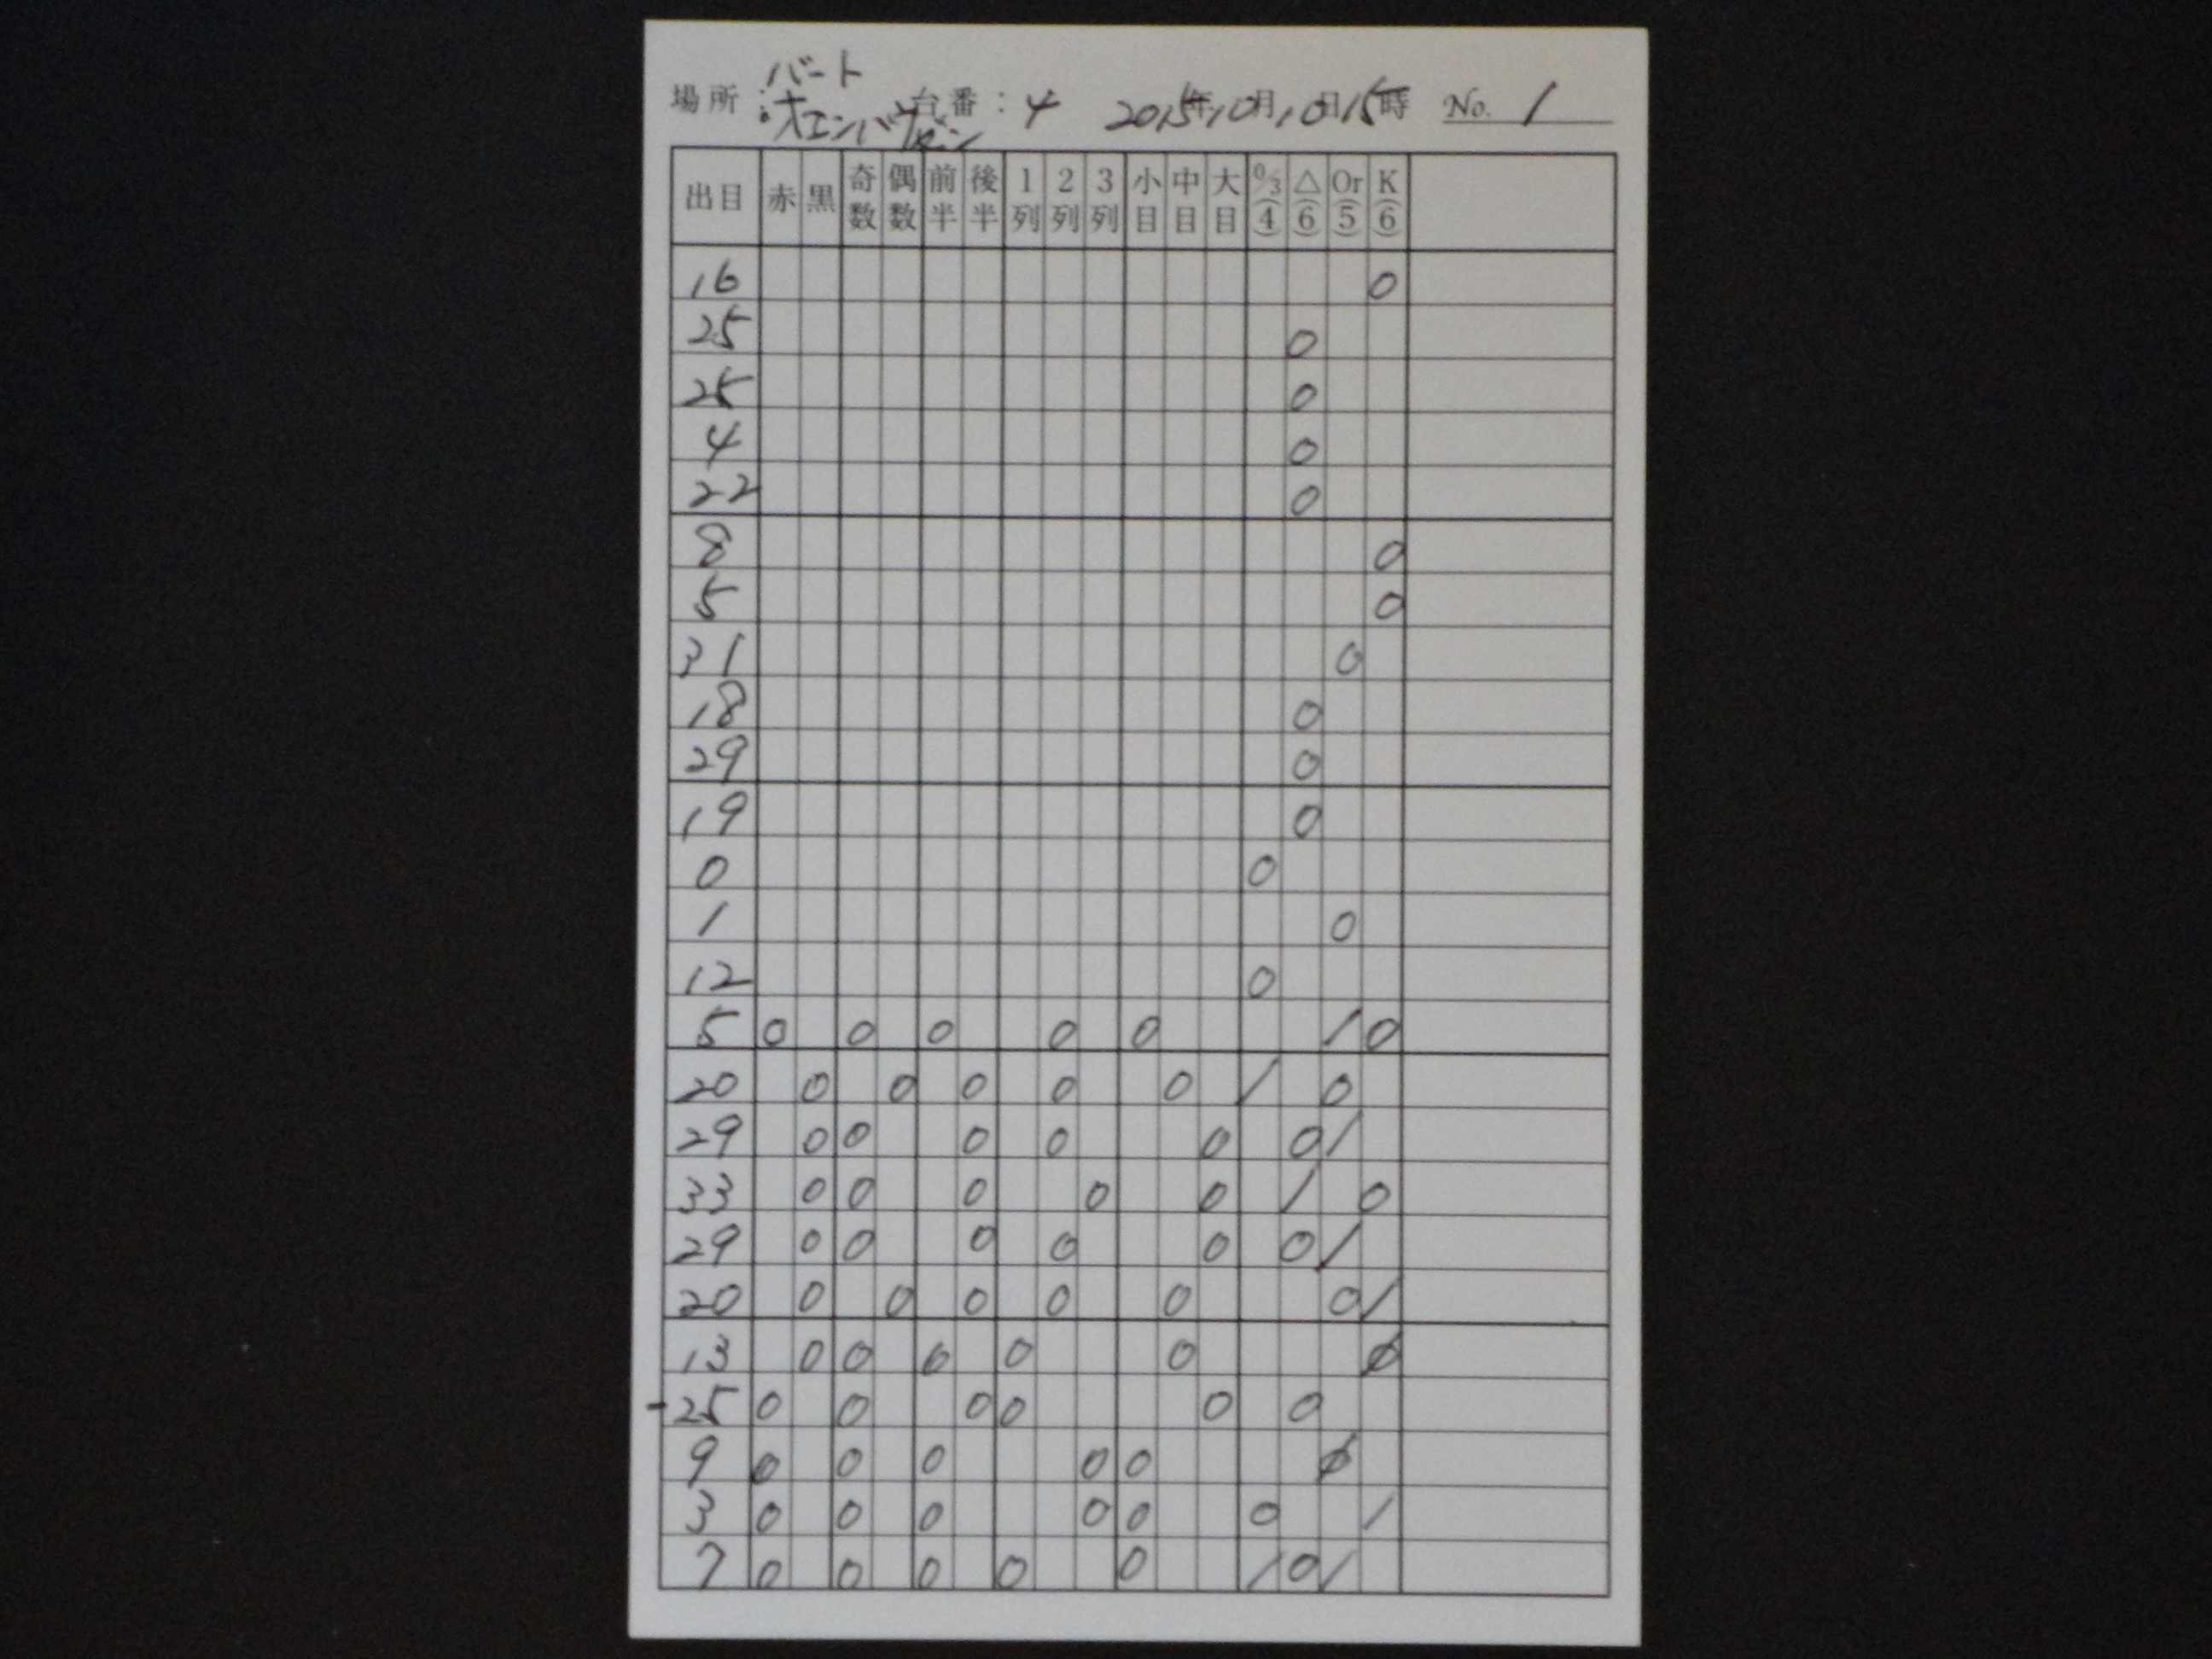 場所：バート
オエンハウゼン 台番：4 2015年10月10日15時 No. 1
出目 赤 黒 奇数 偶数 前半 後半 1列 2列 3列 小目 中目 大目 0/3(4) △(6) Or(5) K(6)
16 0
25 0
25 0
4 0
22 0
8 0
5 0
31 0
18 0
29 0
19 0
0 0
1 0
12 0
5 0 0 0 0 0 / 0
20 0 0 0 0 0 / 0
29 0 0 0 0 0 0 /
33 0 0 0 0 0 / 0
29 0 0 0 0 0 0 /
20 0 0 0 0 0 0 /
13 0 0 0 0 0 ∅
-25 0 0 0 0 0 0
9 0 0 0 0 0 ∅
3 0 0 0 0 0 0 /
7 0 0 0 0 0 / 0 /